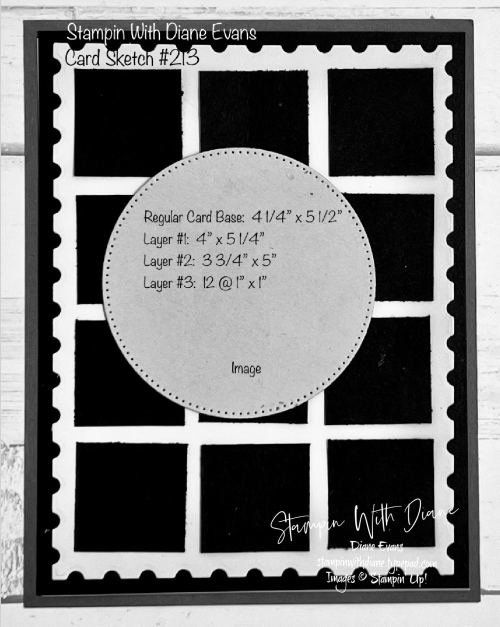 Stampin With Diane Evans
Card Sketch #213
Regular Card Base: 4 1/4" x 5 1/2"
Layer #1: 4" x 5 1/4"
Layer #2: 3 3/4" x 5"
Layer #3: 12 @ 1" x 1"
Image
Stampin With Diane
Diane Evans
stampinwithdiane.typepad.com
Images © Stampin Up!